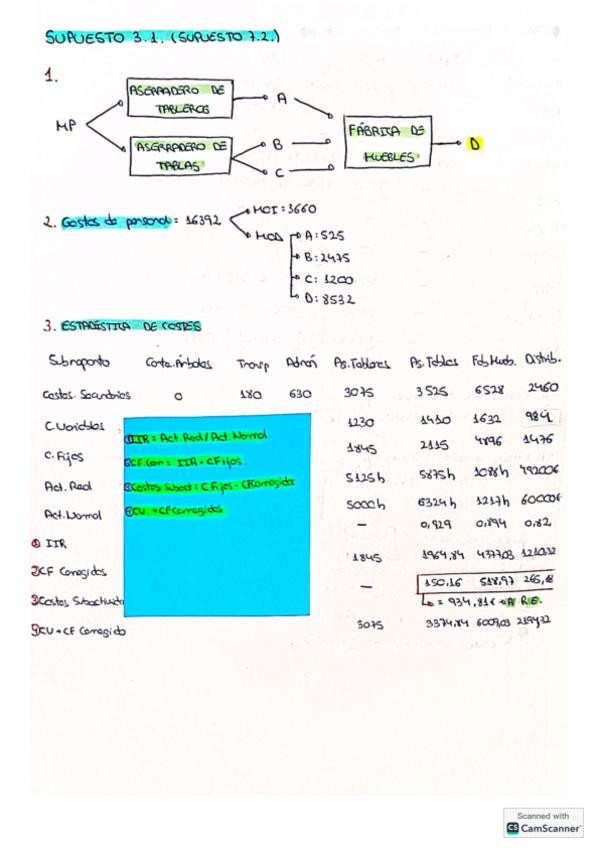 SUPUESTO 3.1. (SUPUESTO 7.2.)
1.
MP
ASERRADERO DE TABLEROS
A
ASERRADERO DE TABLAS
B
C
FÁBRICA DE MUEBLES
D
2. Gastos de personal = 16392
MOI: 3660
MOD
A: 525
B: 2475
C: 1200
D: 8532
3. ESTADÍSTICA DE COSTES
Subreparto Corta. Árboles Transp Admón As. Tableros As. Tablas Fáb. Mueb. Distrib.
Costes. Secundarios 0 180 630 3075 3525 6528 2460
C. Variables 1230 1410 1632 984
C. Fijos 1845 2115 4896 1476
Act. Real 5125h 5875h 1088h 492006
Act. Normal 5000h 6324h 1217h 600006
① IIR - 0,929 0,894 0,82
② CF Corregidos 1845 1964,84 4377,03 1210,32
③ Costes Subactividad - 150,16 518,97 265,68
= 934,816 → A R.E.
④ CU + CF Corregido 3075 3374,84 6009,03 2194,32
① IIR = Act. Real / Act. Normal
② CF Corr = IIR · CFijos
③ Costes Subact = C. Fijos - CF Corregidos
④ CU. + CF Corregidos
Scanned with
CS CamScanner